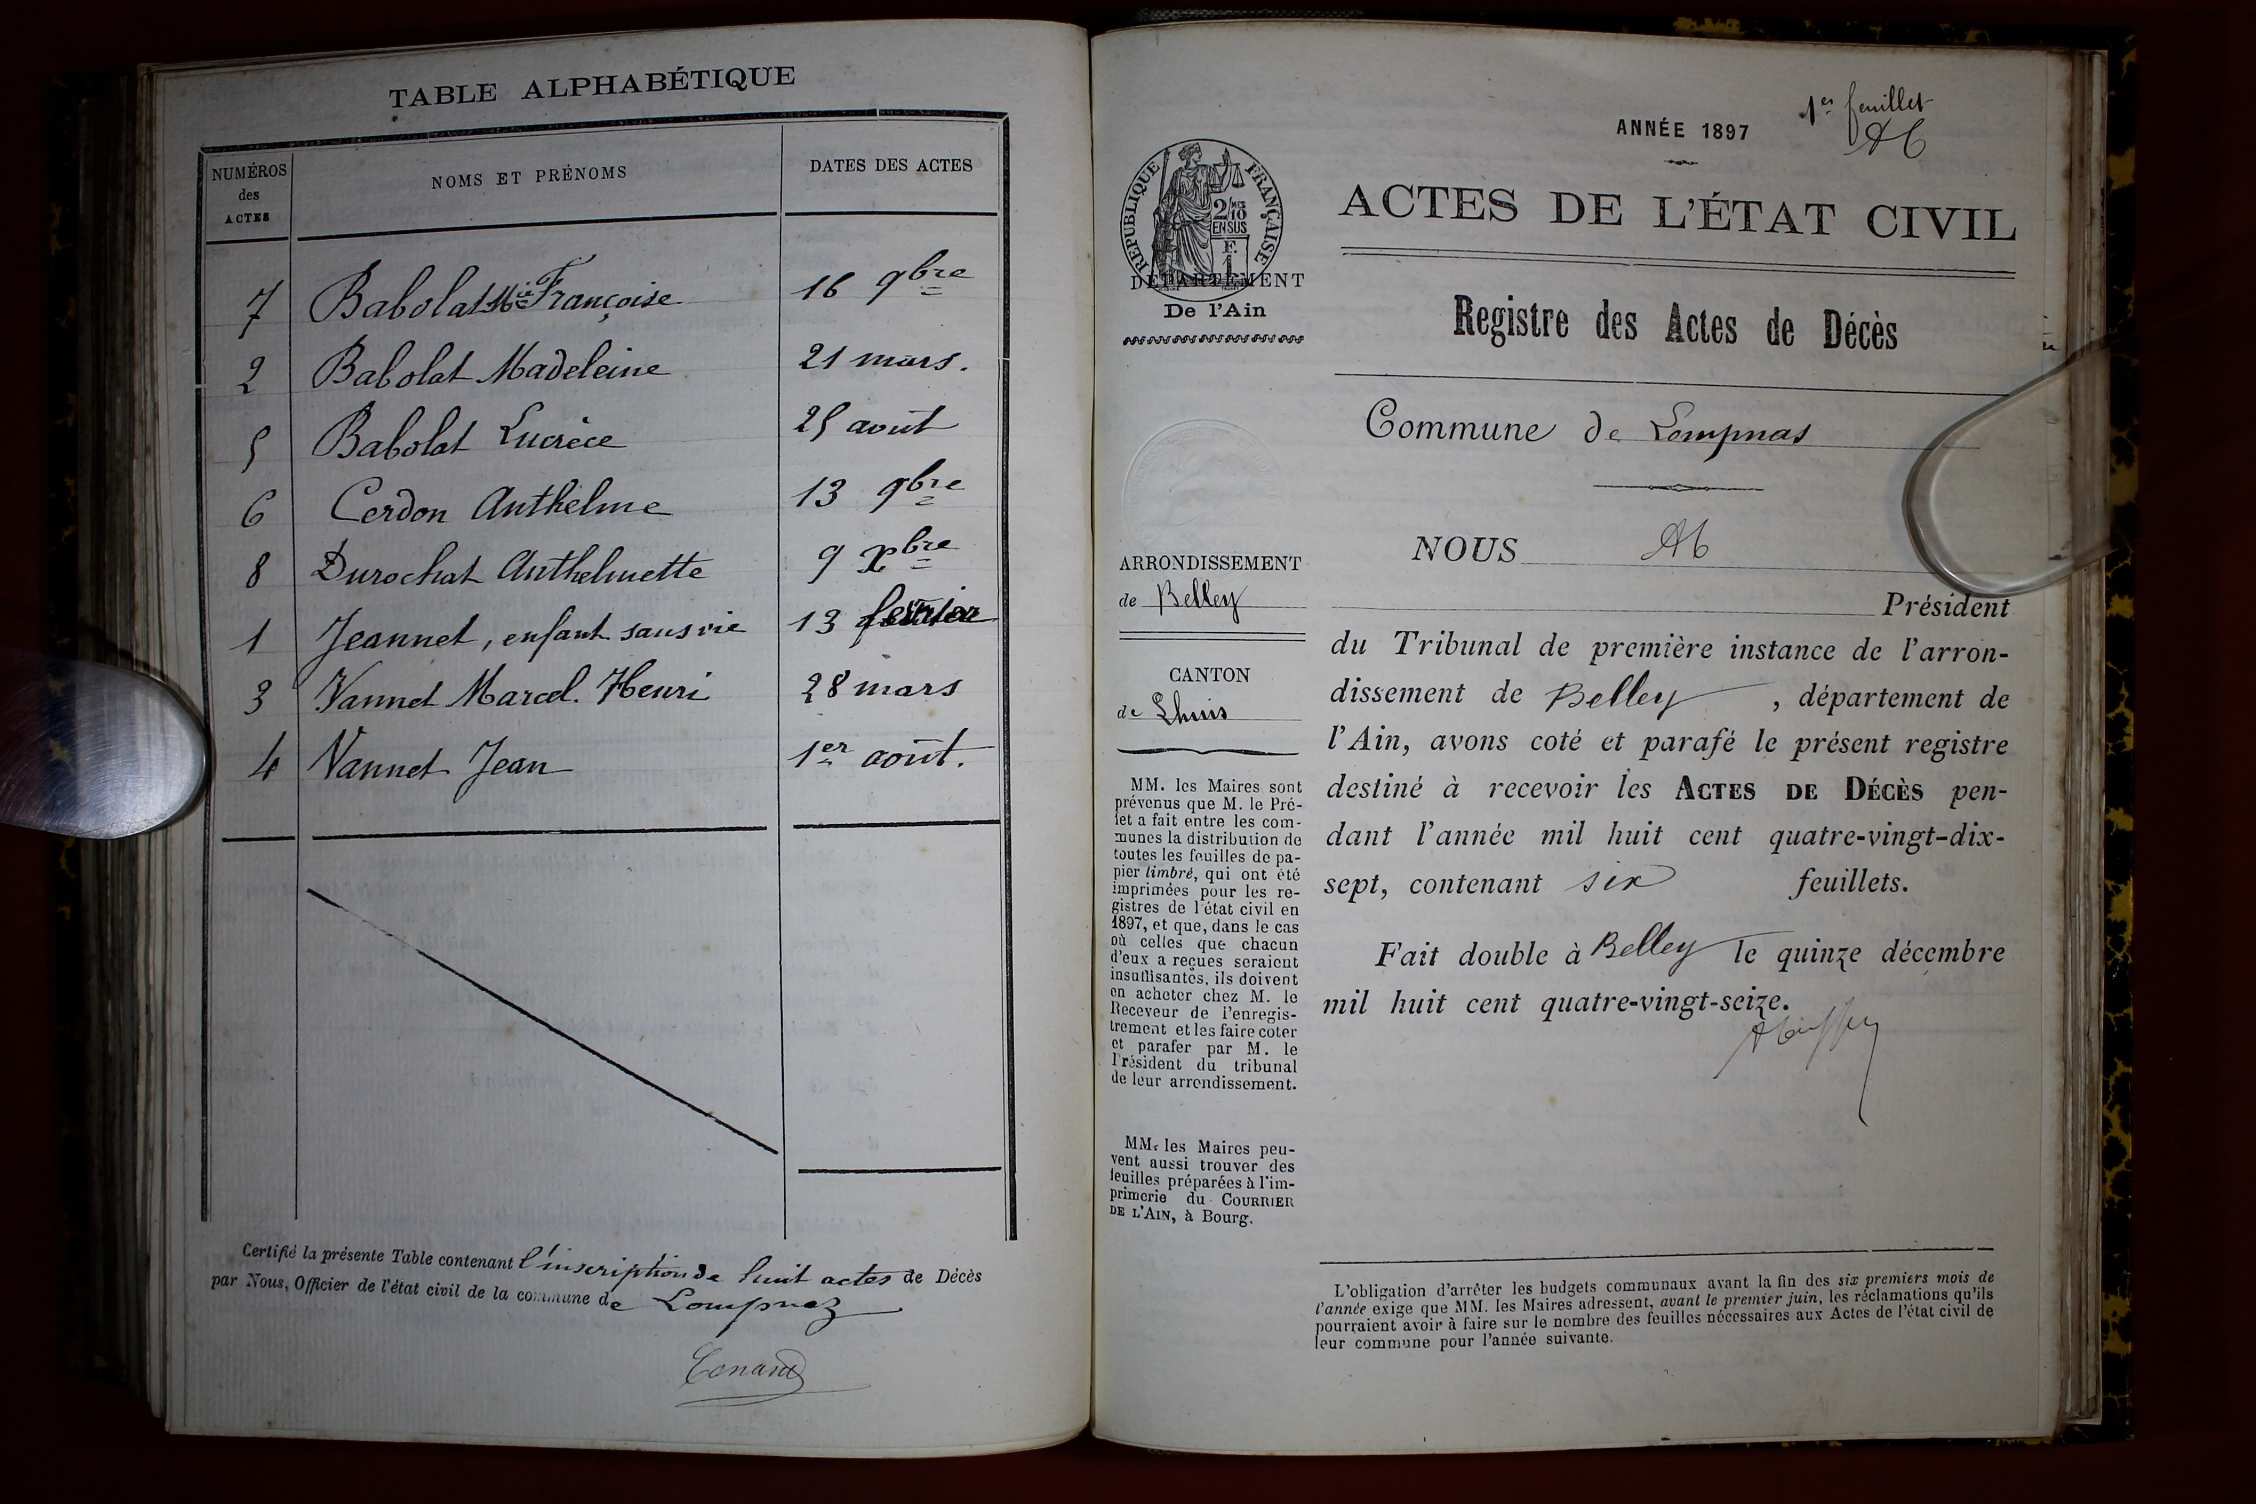 TABLE ALPHABÉTIQUE
NUMÉROS
des
ACTES
NOMS ET PRÉNOMS
DATES DES ACTES
7 Babolat Mie Françoise 16 9bre
2 Babolat Madeleine 21 mars.
5 Babolat Lucrèce 25 août
6 Cerdon Anthelme 13 9bre
8 Durochat Anthelmette 9 Xbre
1 Jeannet, enfant sans vie 13 février
3 Vannet Marcel. Henri 28 mars
4 Vannet Jean 1er août.
Certifié la présente Table contenant l'inscription de huit actes de Décès
par Nous, Officier de l'état civil de la commune de Lompnaz
1er feuillet
ANNÉE 1897
RÉPUBLIQUE FRANÇAISE
2/10
EN SUS
F.
1
DÉPARTEMENT
De l'Ain
ARRONDISSEMENT
de Belley
CANTON
de Lhuis
MM. les Maires sont
prévenus que M. le Pré-
fet a fait entre les com-
munes la distribution de
toutes les feuilles de pa-
pier timbré, qui ont été
imprimées pour les re-
gistres de l'état civil en
1897, et que, dans le cas
où celles que chacun
d'eux a reçues seraient
insuffisantes, ils doivent
en acheter chez M. le
Receveur de l'enregis-
trement et les faire coter
et parafer par M. le
Président du tribunal
de leur arrondissement.
MM. les Maires peu-
vent aussi trouver des
feuilles préparées à l'im-
primerie du COURRIER
DE L'AIN, à Bourg.
ACTES DE L'ÉTAT CIVIL
Registre des Actes de Décès
Commune de Lompnas
NOUS
Président
du Tribunal de première instance de l'arron-
dissement de Belley, département de
l'Ain, avons coté et parafé le présent registre
destiné à recevoir les ACTES DE DÉCÈS pen-
dant l'année mil huit cent quatre-vingt-dix-
sept, contenant six feuillets.
Fait double à Belley le quinze décembre
mil huit cent quatre-vingt-seize.
L'obligation d'arrêter les budgets communaux avant la fin des six premiers mois de
l'année exige que MM. les Maires adressent, avant le premier juin, les réclamations qu'ils
pourraient avoir à faire sur le nombre des feuilles nécessaires aux Actes de l'état civil de
leur commune pour l'année suivante.